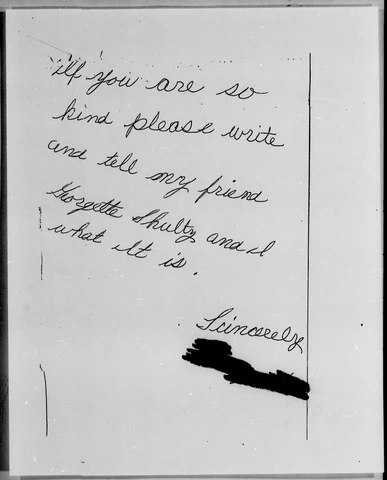 If you are so
kind please write
and tell my friend
Gorgette Shultz and I
what It is.
Scincerely